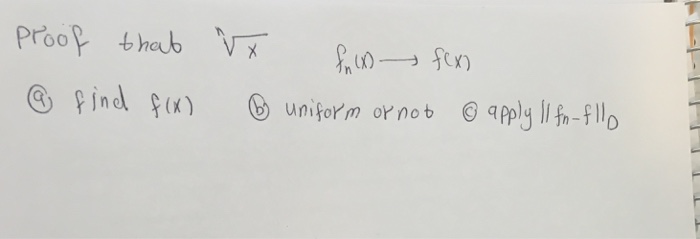 Proof that ⁿ√x fₙ(x) → f(x)
ⓐ find f(x) ⓑ uniform or not ⓒ apply ||fn-f||D